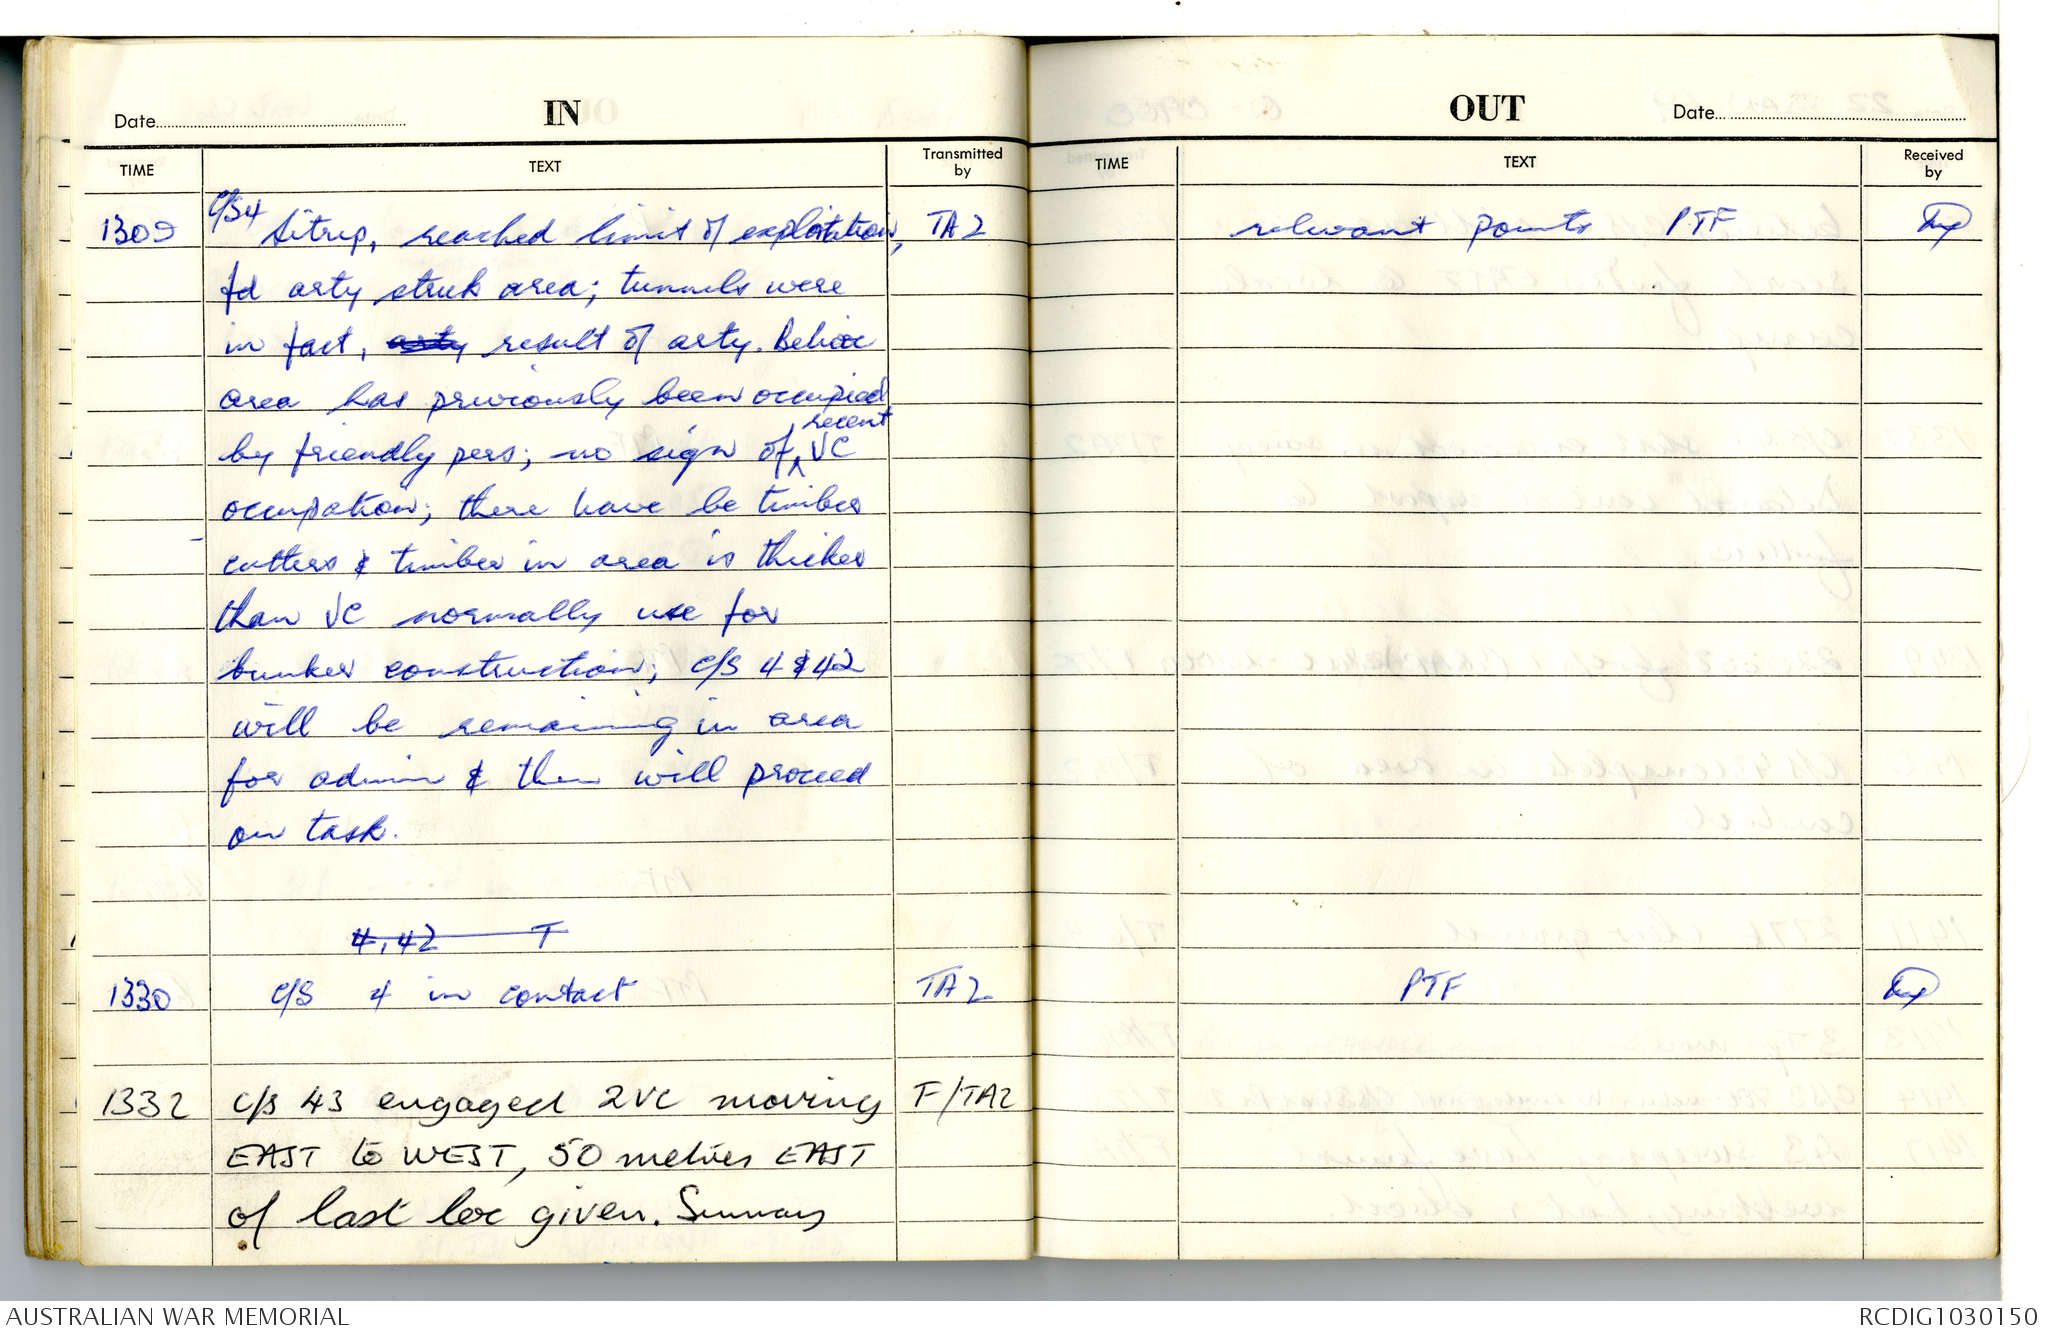 Date IN
TIME TEXT Transmitted by
1309 C/S4 Sitrep, reached limit of exploitation, TA2
fd arty struck area; tunnels were
in fact, arty result of arty. Believe
area has previously been occupied
by friendly pers; no sign of recent VC
occupation; there have be timber
cutters & timber in area is thicker
than VC normally use for
bunker construction; C/S 4 & 42
will be remaining in area
for admin & then will proceed
on task.
4, 42 T
1330 C/S 4 in contact TA2
1332 C/S 43 engaged 2VC moving F/TA2
EAST to WEST, 50 metres EAST
of last loc given. Summary
OUT Date
TIME TEXT Received by
relevant points PTF
PTF
AUSTRALIAN WAR MEMORIAL RCDIG1030150